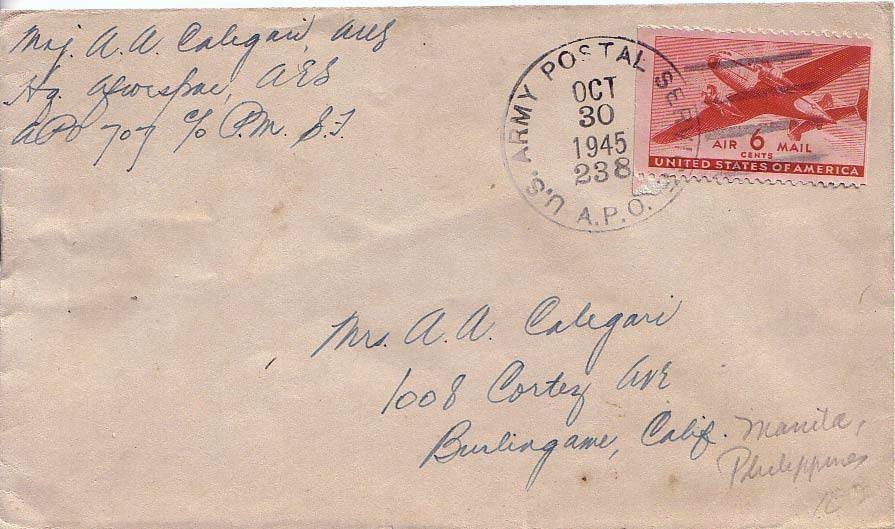 Maj. A. A. Calegari, AUS
Hq. Afwespac, AES
APO 707 c/o P.M. S.F.
U.S. ARMY POSTAL SERVICE
OCT
30
1945
238
A.P.O.
AIR 6 MAIL
CENTS
UNITED STATES OF AMERICA
Mrs. A. A. Calegari
1008 Cortez AVE
Burlingame, Calif.
Manila,
Philippines